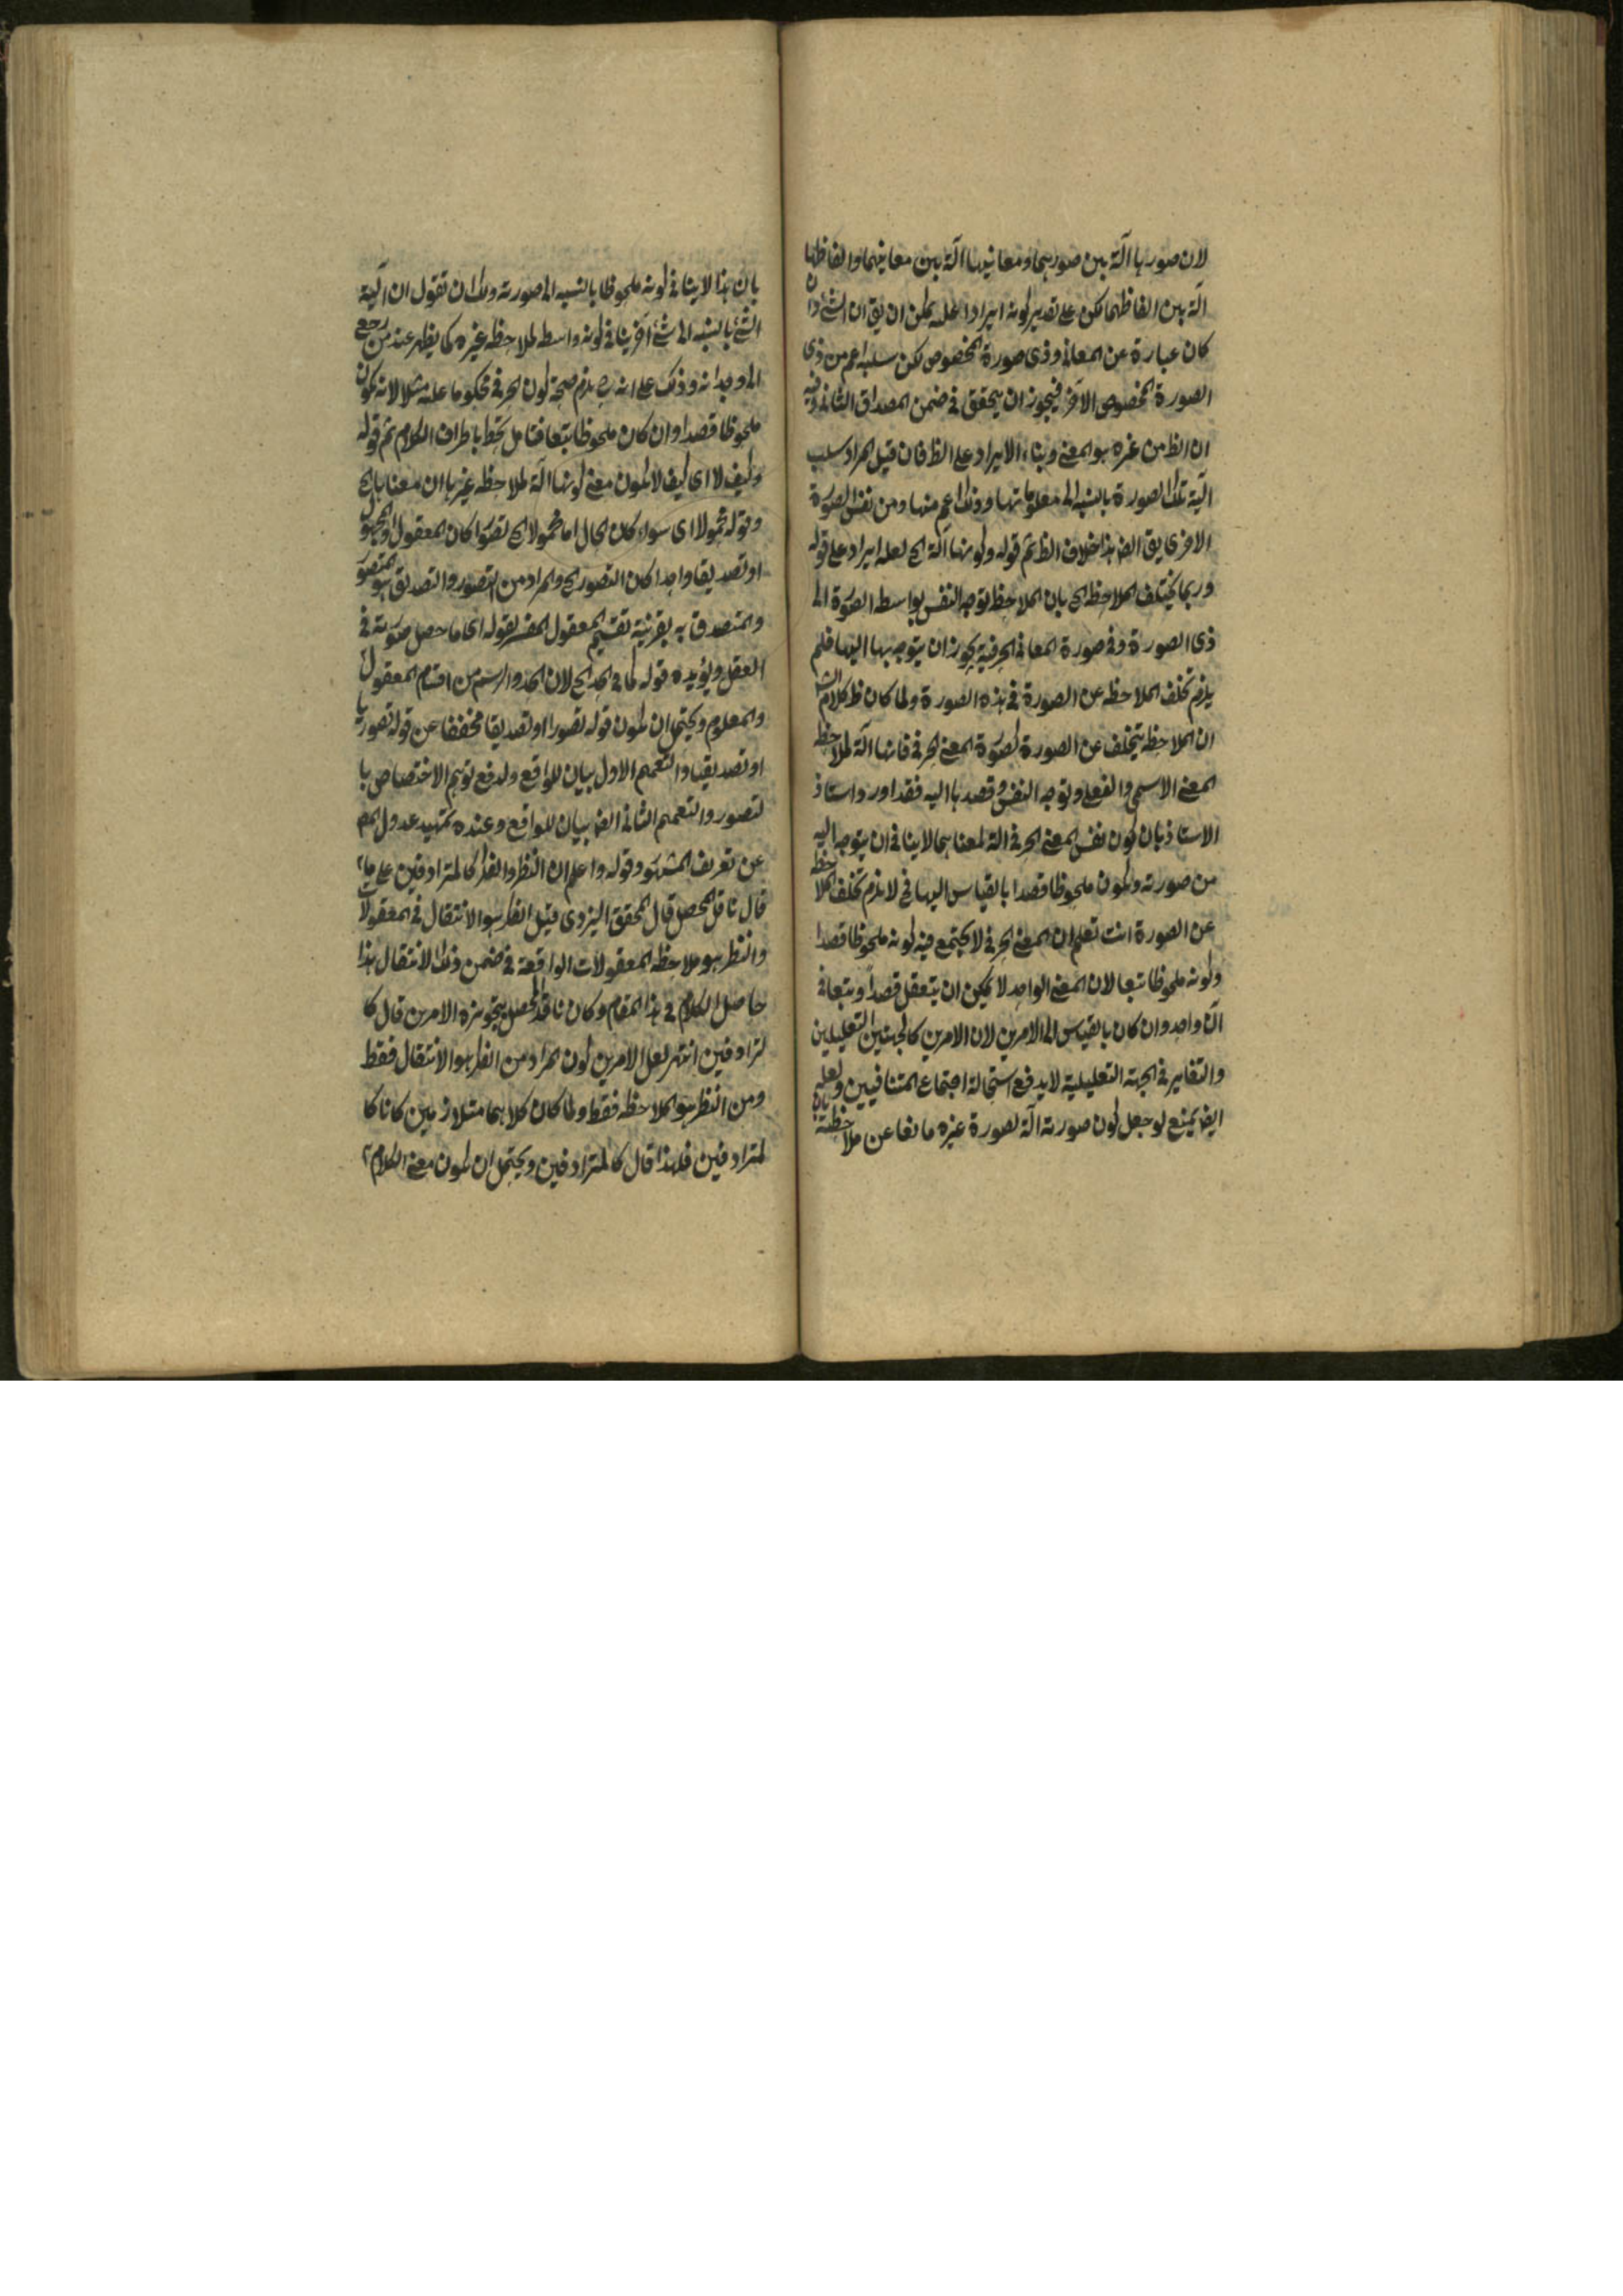 لان صورها آلة بين صورهما ومعانيها آلة بين معانيهما والفاظها
آلة بين الفاظهما لكن على تقدير كونه ايرادا عليه يمكن ان يق ان الشئ وان
كان عبارة عن المعانى وذى صورة المخصوص لكن سلبه اعم من ذى
الصورة المخصوص الآخر فيجوز ان يتحقق فى ضمن المصداق الثانى وفيه
ان الظ من غيره هو المعنى وبناء الايراد على الظ فان قيل المراد سلب
آلية تلك الصورة بالنسبة الى معلوماتها وذلك اعم منها ومن نفس الصورة
الاخرى يق ايض هذا خلاف الظ ثم قوله وكونها آلة الخ لعله ايراد على قوله
وربما يختلف الملاحظة الخ بان الملاحظة توجه النفس بواسطة الصورة الى
ذى الصورة وفى صورة المعانى الحرفية يجوز ان يتوجه بها اليها فلم
يلزم تخلف الملاحظة عن الصورة فى هذه الصورة ولما كان ظ كلام الش
ان الملاحظة يتخلف عن الصورة لصورة المعنى الحرفى فانها آلة لملاحظة
المعنى الاسمى والفعلى وتوجه النفس وقصدها اليه فقد اورد استاذ
الاستاذ بان كون نفس المعنى الحرفى آلة لمعناهما لا ينافى ان يتوجه اليه
من صورته ويكون ملحوظا قصدا بالقياس اليها فح لا يلزم تخلف الملاحظة
عن الصورة انت تعلم ان المعنى الحرفى لا يجتمع فيه كونه ملحوظا قصدا
وكونه ملحوظا تبعا لان المعنى الواحد لا يمكن ان يتعقل قصدا وتبعا فى
آن واحد وان كان بالقياس الى الامرين لان الامرين كالجهتين التعليلين
والتغاير فى الجهة التعليلية لا يدفع استحالة اجتماع المتنافيين ولعله
ايض يمنع لو جعل كون صورته آلة لصورة غيره مانعا عن ملاحظته بان
بان هذا لا ينافى كونه ملحوظا بالنسبة الى صورته ولك ان تقول ان آلية
الشئ بالنسبة الى شئ آخر ينافى كونه واسطة لملاحظة غيره كما يظهر عند من رجع
الى وجدانه وذلك على انه ح يلزم صحة كون الحرفى محكوما عليه مثلا لانه يكون
ملحوظا قصدا وان كان ملحوظا تبعا فتأمل تحط باطراف الكلام ثم قوله
وكيف لا اى كيف لا يكون معنى كونها آلة لملاحظة غيرها ان معناها الخ
وقوله محمولا اى سواء كان الحال اما محمولا الخ تصورا كان المعقول والمجهول
او تصديقا واحدا كان التصور الخ والمراد من التصور والتصديق هو المتصور
والمتصدق به بقرينة تقسيم المعقول المفسر بقوله اى ما حصل صورته فى
العقل ويؤيده قوله كما فى الحد الخ لان الحد والرسم من اقسام المعقول
والمعلوم ويحتمل ان يكون قوله تصورا او تصديقا مخففا عن قوله تصوريا
او تصديقيا والتعميم الاول بيان للواقع ولدفع توهم الاختصاص با
لتصور والتعميم الثانى ايض بيان للواقع وعنده تمهيد عدول المص
عن تعريف المشهور وقوله واعلم ان النظر والفكر كالمترادفين على ما
قال ناقد المحصل قال المحقق اليزدى قيل الفكر هو الانتقال فى المعقولات
والنظر هو ملاحظة المعقولات الواقعة فى ضمن ذلك الانتقال هذا
حاصل الكلام فى هذا المقام وكان ناقد المحصل يتجويزه الامرين قال كا
لمترادفين انتهى لعل الامرين كون المراد من الفكر هو الانتقال فقط
ومن النظر هو الملاحظة فقط ولما كان كلاهما متلازمين كانا كا
لمترادفين فلهذا قال كالمترادفين ويحتمل ان يكون معنى الكلام